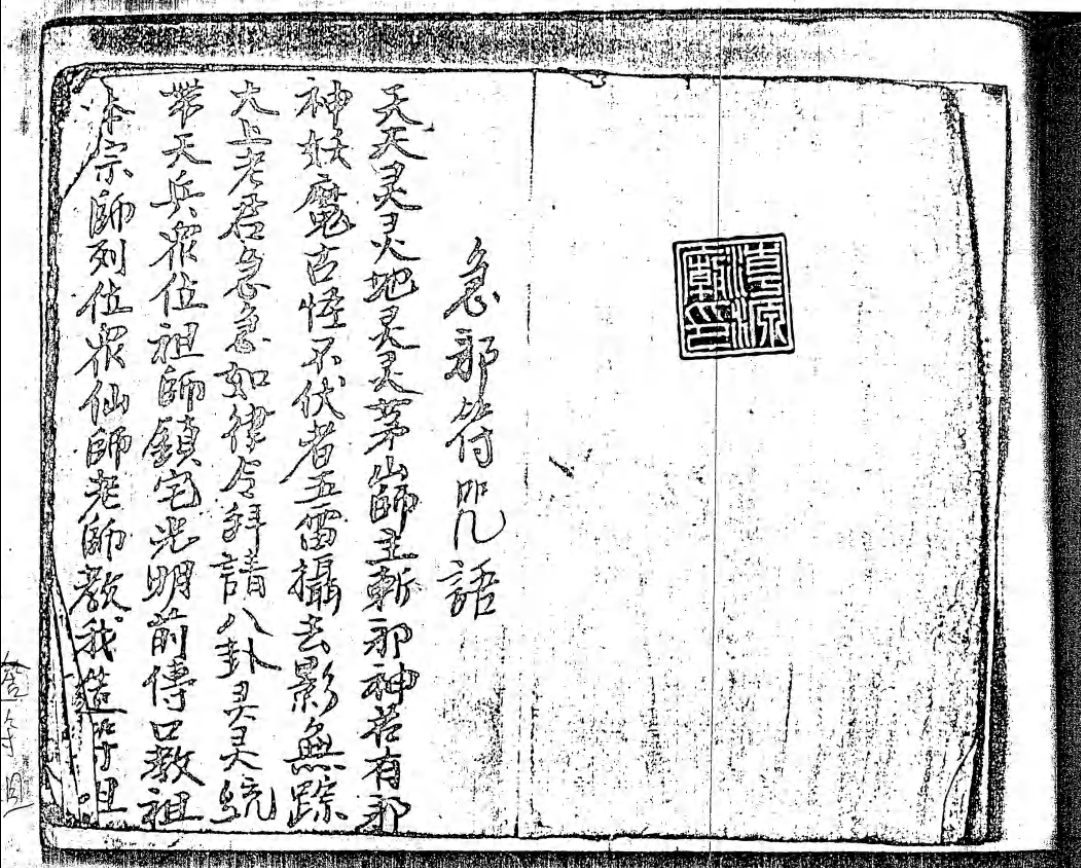 清源
廟印
急邪符咒語
天天灵灵地灵灵茅山師主斬邪神若有邪
神妖魔古怪不伏者五雷攝去影無踪
太上老君急急如律令拜請八卦灵灵統
帶天兵衆位祖師鎮宅光明前傳口教祖
本宗師列位衆仙師老師教我造